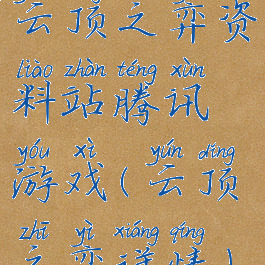 云顶之弈资
liào zhàn téng xùn
料站腾讯
yóu xì yún dǐng
游戏(云顶
zhī yì xiáng qíng
之弈详情)